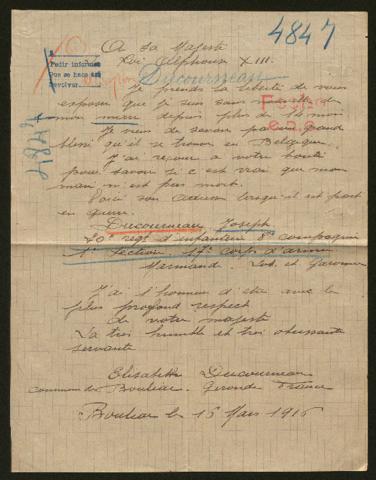 A Sa Majesté
4847
Roi Alphonse XIII.
Pedir informes
Que se haga
devolver.
Ducourneau
Je prends la liberté de vous
exposer que je suis sans nouvelle de
mon mari depuis plus de 14 mois
Je viens de savoir par un grand
blessé qu'il se trouve en Belgique.
J'ai recours a votre bonté
pour savoir si c'est vrai que mon
mari n'est pas mort.
Voici son adresse lorsqu'il est parti
en guerre.
Ducourneau Joseph
20e regt d'infanterie 8e compagnie
1e Section 17e corps d'armée
Marmand. Lot et Garonne
J'ai l'honneur d'être avec le
plus profond respect
de votre majesté
La très humble et très obeissante
servante
Elisabeth Ducourneau
commune de Bouliac. Gironde France
Bouliac le 15 Mars 1916
4847